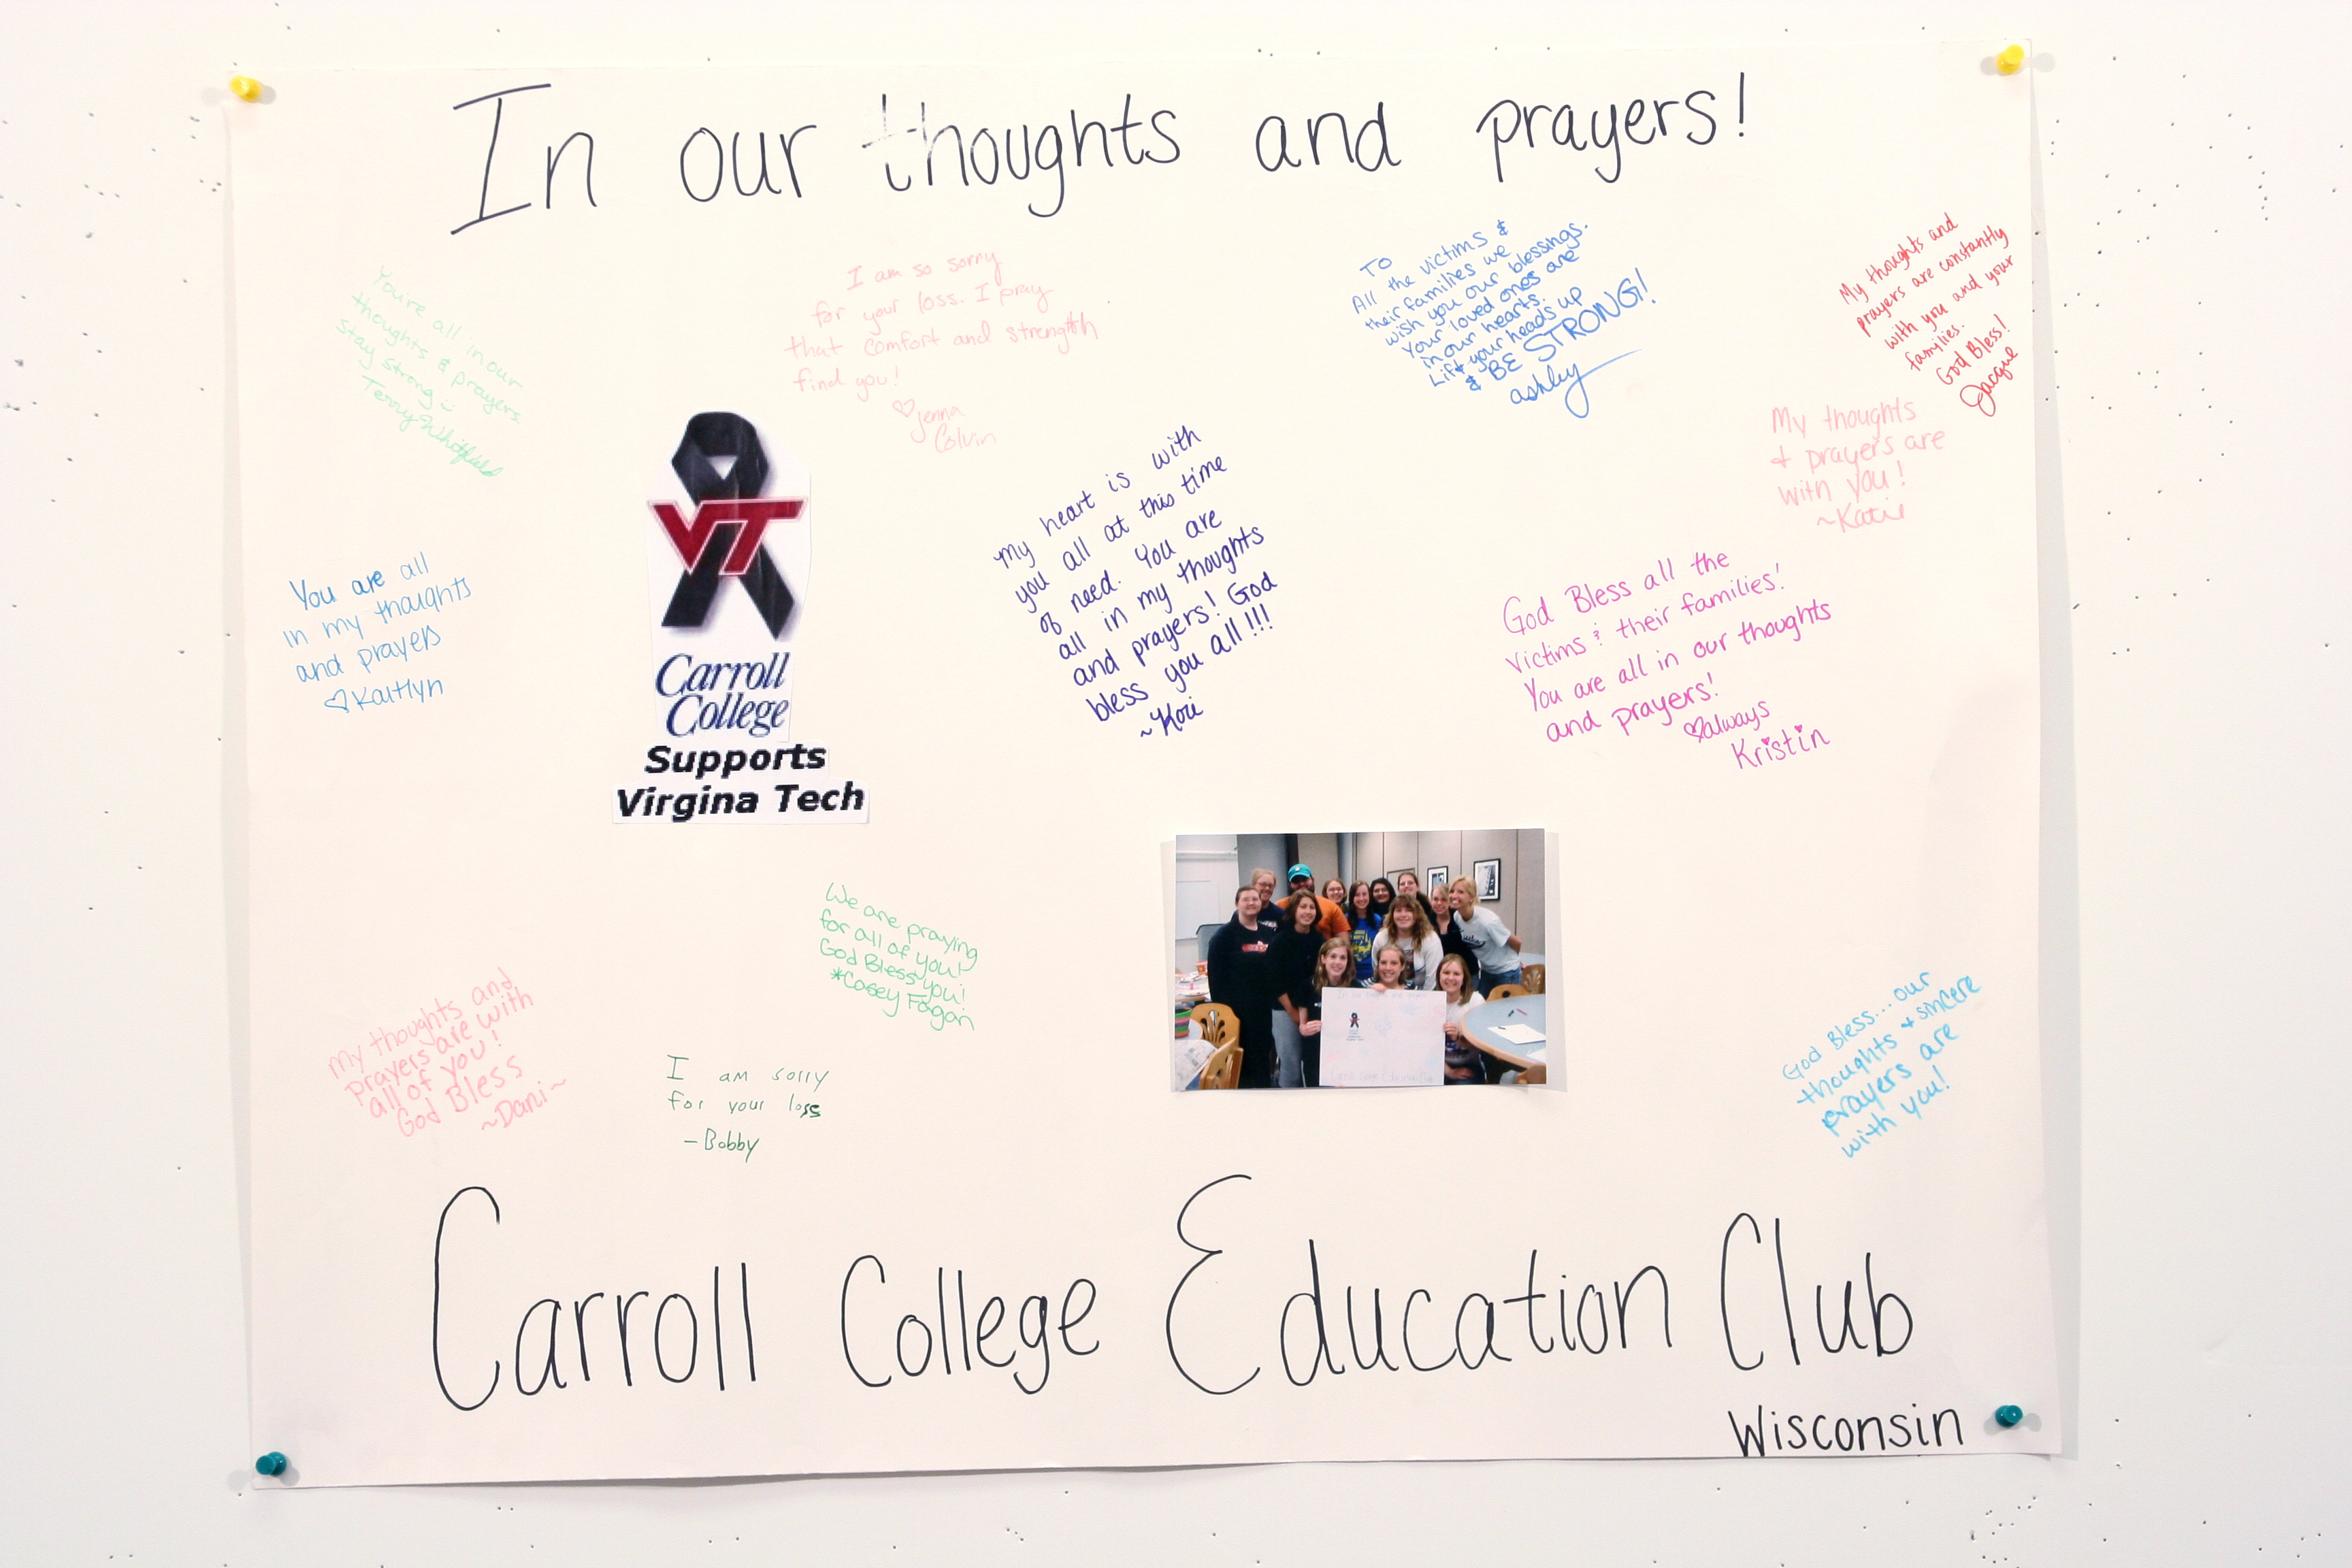 In our thoughts and prayers!
You're all in our
thoughts & prayers
stay strong
Terry Whitfield
I am so sorry
for your loss. I pray
that comfort and strength
find you!
Jenna
Colvin
To
All the victims &
their families we
wish you our blessings.
Your loved ones are
in our hearts.
Lift your heads up
& BE STRONG!
ashley
My thoughts and
prayers are constantly
with you and your
families.
God Bless!
Jacque
My thoughts
& prayers are
with you!
~Katie
VT
Carroll
College
Supports
Virgina Tech
You are all
in my thoughts
and prayers
♡Kaitlyn
My heart is with
you all at this time
of need. You are
all in my thoughts
and prayers! God
bless you all!!!
~Kori
God Bless all the
victims & their families!
You are all in our thoughts
and prayers!
♡always
Kristin
We are praying
for all of you!
God Bless you!
*Casey Fagan
My thoughts and
prayers are with
all of you!
God Bless
~Dani~
I am sorry
for your loss
-Bobby
God Bless... our
thoughts & sincere
prayers are
with you!
Carroll College Education Club
Wisconsin